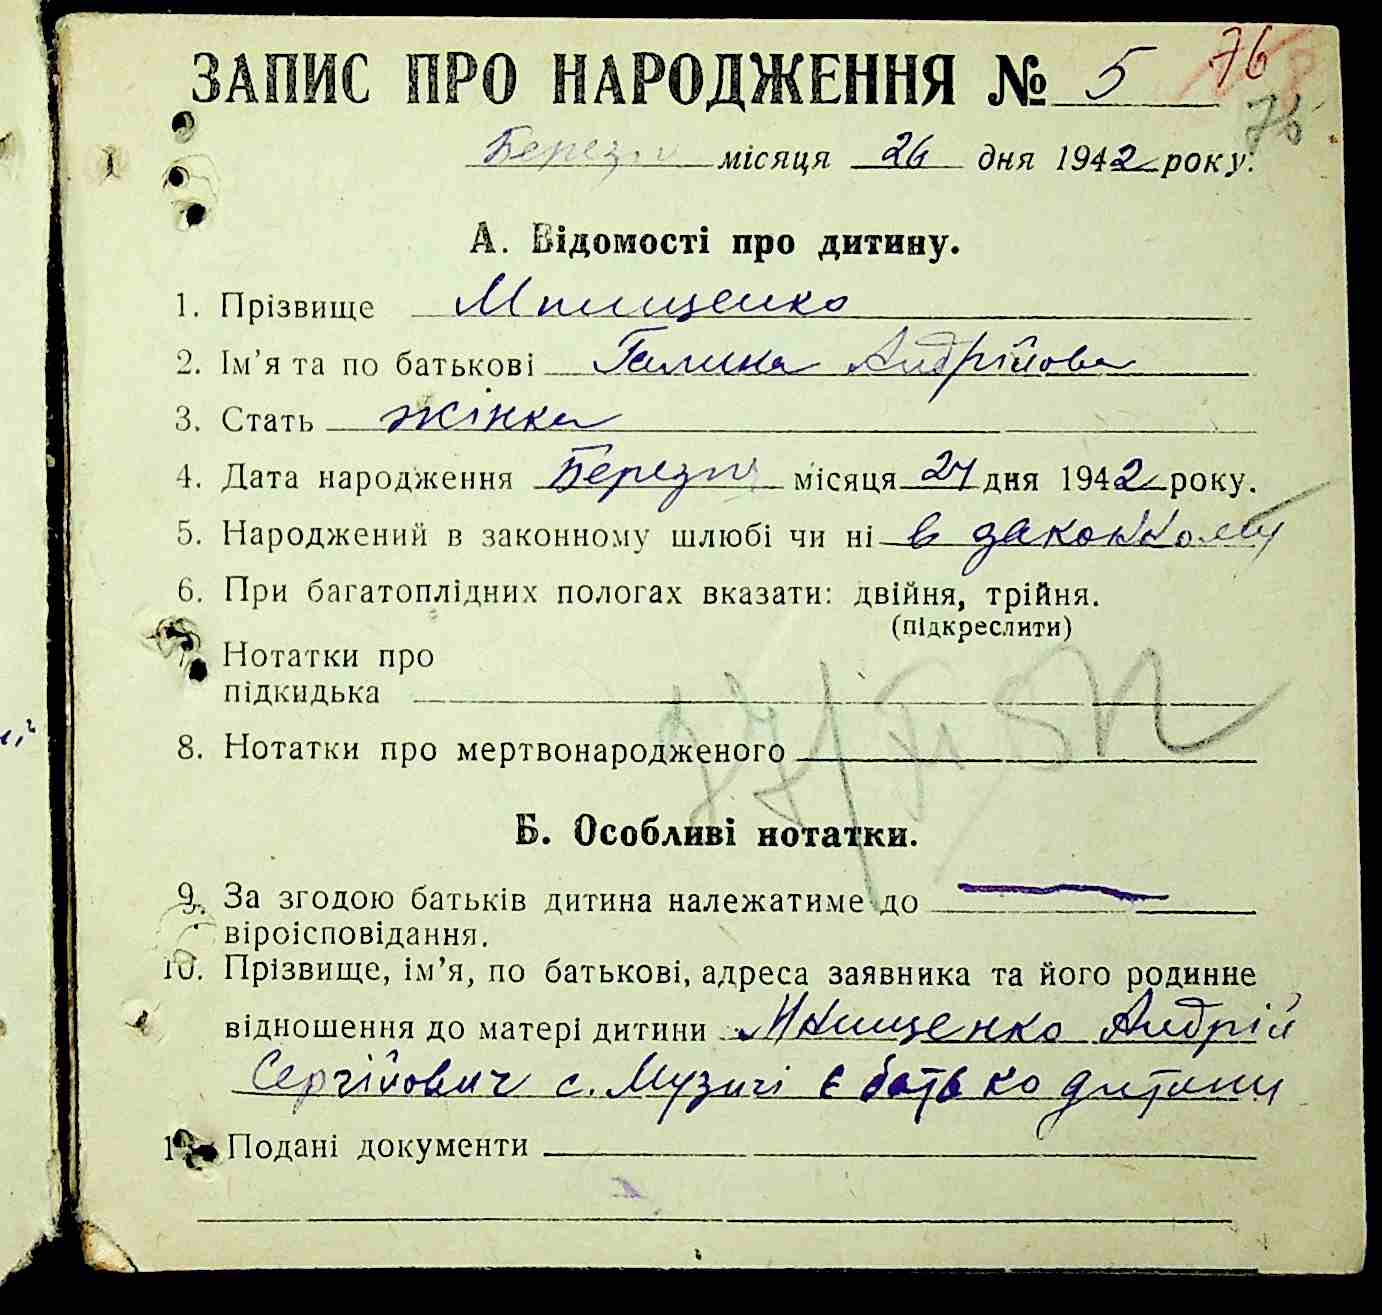 76
ЗАПИС ПРО НАРОДЖЕННЯ № 5
76
Березня місяця 26 дня 1942 року.
А. Відомості про дитину.
1. Прізвище
2. Ім’я та по батькові Галина Андрійовна
3. Стать жінка
4. Дата народження Березня місяця 24 дня 1942 року.
5. Народжений в законному шлюбі чи ні в законному
6. При багатоплідних пологах вказати: двійня, трійня.
(підкреслити)
Нотатки про
підкидька
8. Нотатки про мертвонародженого
Б. Особливі нотатки.
9. За згодою батьків дитина належатиме до
віроісповідання.
10. Прізвище, ім’я, по батькові, адреса заявника та його родинне
відношення до матері дитини Андрій
Сергійович с. Музичі є батько дитини
11. Подані документи